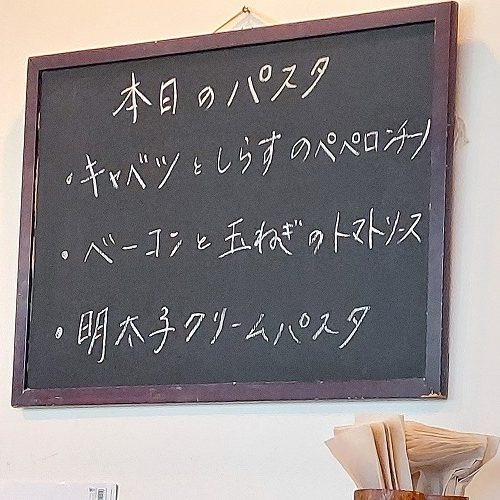 本日のパスタ
・キャベツとしらすのペペロンチーノ
・ベーコンと玉ねぎのトマトソース
・明太子クリームパスタ